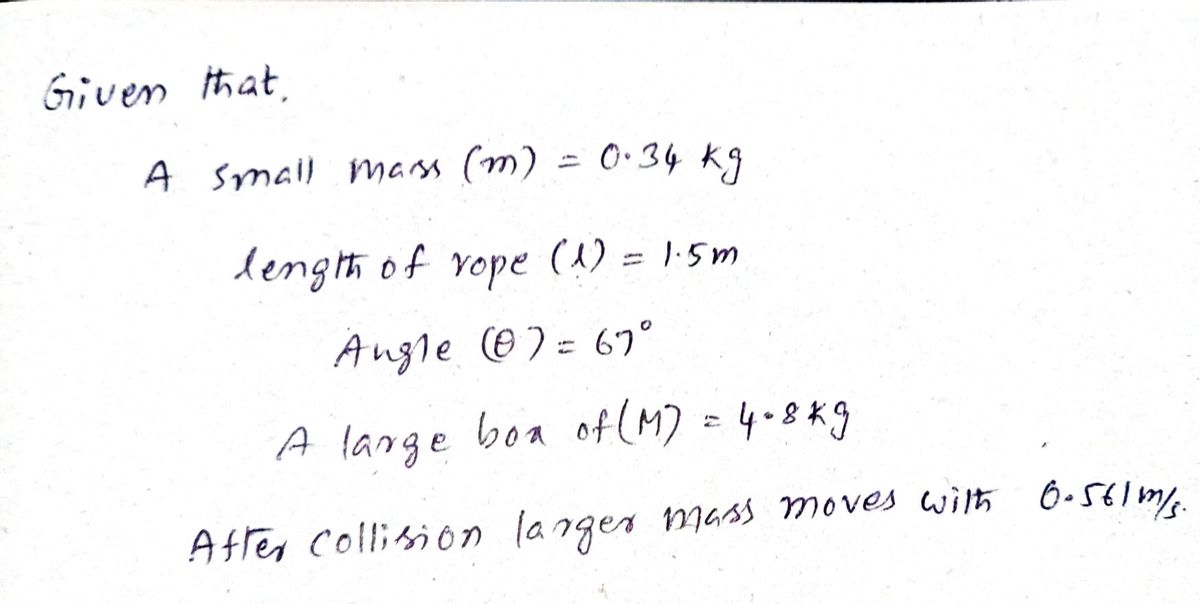 Given that,
A small mass (m) = 0.34 kg
length of rope (l) = 1.5m
Angle (θ) = 67°
A large box of (M) = 4.8kg
After collision larger mass moves with 0.561m/s.